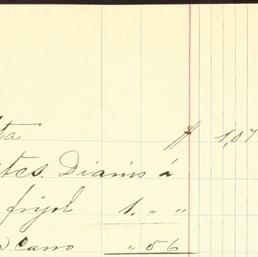 ta $ 1,07
tes. Diarios á
frijol 1. " "
carro " 56